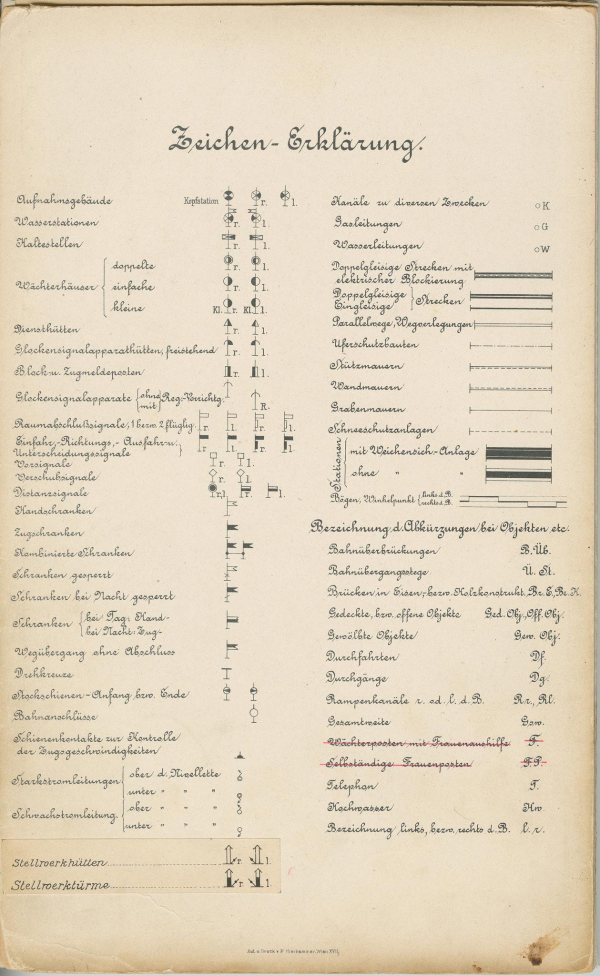 Zeichen-Erklärung.
Aufnahmsgebäude Kopfstation r. l.
Wasserstationen r. l.
Haltestellen r. l.
Wächterhäuser
doppelte r. l.
einfache r. l.
kleine Kl. r. Kl. l.
Diensthütten r. l.
Glockensignalapparathütten, freistehend r. l.
Block u. Zugmeldeposten r. l.
Glockensignalapparate {ohne mit} Reg.-Vorrichtg. R.
Raumabschlußsignale, 1 bezw. 2 flüglig r. l. r. l.
Einfahr-, Richtungs-, Ausfahr- u.
Unterscheidungssignale r. l. r. l.
Vorsignale r. l.
Verschubsignale r. l.
Distanzsignale r. l. r. l.
Handschranken
Zugschranken
Kombinierte Schranken
Schranken gesperrt
Schranken bei Nacht gesperrt
Schranken {bei Tag: Hand-
bei Nacht: Zug-
Wegübergang ohne Abschluss
Drehkreuze
Stockschienen-Anfang, bzw. Ende
Bahnanschlüsse
Schienenkontakte zur Kontrolle
der Zugsgeschwindigkeiten
Starkstromleitungen
ober d. Nivellette
unter " " "
Schwachstromleitung.
ober " " "
unter " " "
Stellwerkhütten r. l.
Stellwerktürme r. l.
Kanäle zu diversen Zwecken K
Gasleitungen G
Wasserleitungen W
Doppelgleisige Strecken mit
elektrischer Blockierung
Doppelgleisige
Eingleisige
Strecken
Parallelwege, Wegverlegungen
Uferschutzbauten
Stützmauern
Wandmauern
Grabenmauern
Schneeschutzanlagen
Stationen
mit Weichensich.-Anlage
ohne " "
Bögen, Winkelpunkt {links d. B.
rechts d. B.
Bezeichnung d. Abkürzungen bei Objekten etc.
Bahnüberbrückungen B. Üb.
Bahnübergangsstege Ü. St.
Brücken in Eisen-, bezw. Holzkonstrukt. Br. E, Br. H.
Gedeckte, bzw. offene Objekte Ged. Obj., Off. Obj.
Gewölbte Objekte Gew. Obj.
Durchfahrten Df.
Durchgänge Dg.
Rampenkanäle r. od. l. d. B. R r., R l.
Gesamtweite Gsw.
Wächterposten mit Frauenaushilfe F.
Selbständige Frauenposten F. P.
Telephon T.
Hochwasser Hw.
Bezeichnung links, bezw. rechts d. B. l. r.